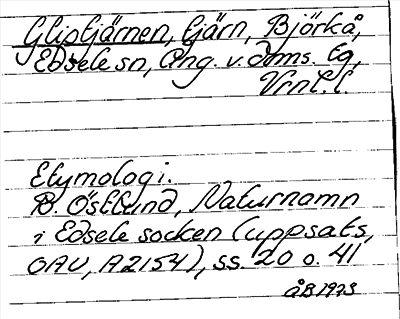 Gliptjärnen, tjärn, Björkå,
Edsele sn, Ång. v. doms. tg,
Vrnl. l
Etymologi.
B. Östlund, Naturnamn
i Edsele socken (uppsats,
OAU, A2154), ss. 20 o. 41
ÅB 1973